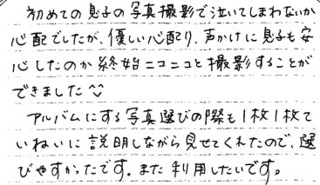 初めての息子の写真撮影で泣いてしまわないか
心配でしたが、優しい心配り、声かけに息子も安
心したのか終始ニコニコと撮影することが
できました
アルバムにする写真選びの際も1枚1枚て
いねいに説明しながら見せてくれたので、選
びやすかったです。また利用したいです。